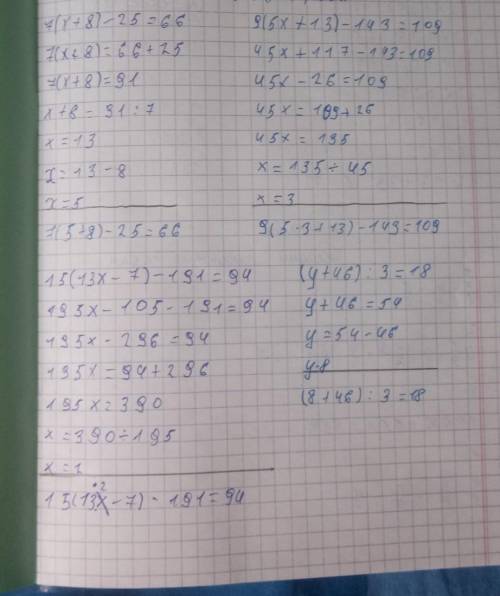 7(x+8)-25=66
7(x+8)=66+25
7(x+8)=91
x+8=91:7
x=13
x=13-8
x=5
7(5+8)-25=66
9(5x+13)-143=109
45x+117-143=109
45x-26=109
45x=109+26
45x=135
x=135÷45
x=3
9(5·3+13)-143=109
15(13x-7)-191=94
195x-105-191=94
195x-296=94
195x=94+296
195x=390
x=390÷195
x=2
15(13·2-7)-191=94
(y+46):3=18
y+46=54
y=54-46
y=8
(8+46):3=18